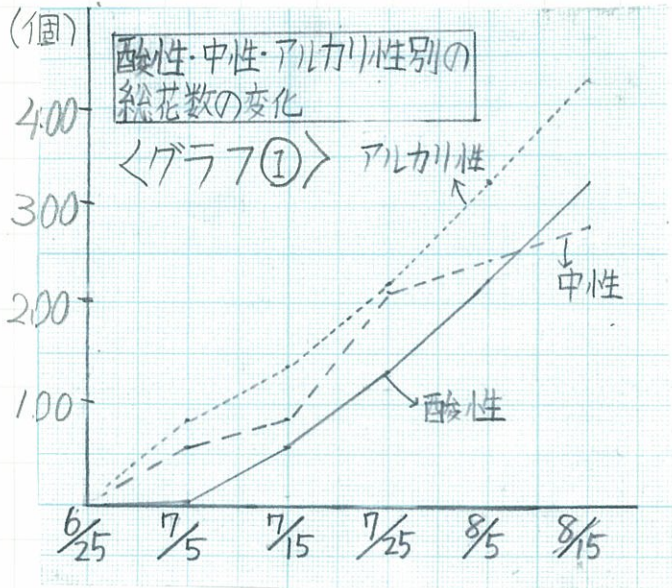 (個)
酸性・中性・アルカリ性別の
総花数の変化
<グラフ①>
アルカリ性
400
300
200
100
中性
酸性
6/25 7/5 7/15 7/25 8/5 8/15